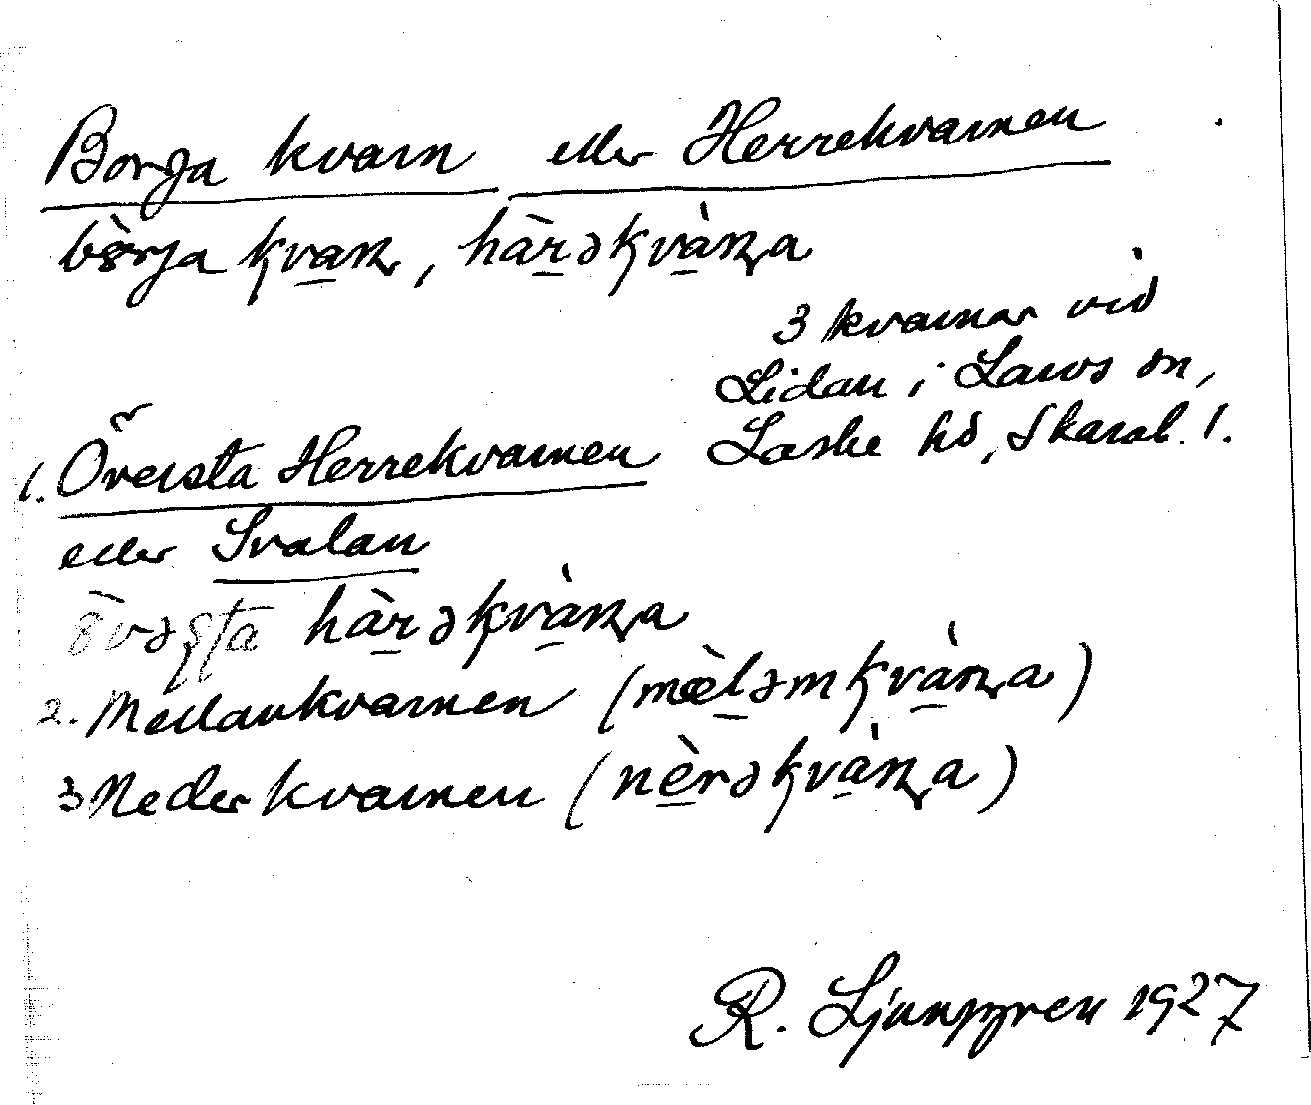 Borga kvarn eller Herrekvarnen
bȍrja kvaɳ, hàrəkvàɳa
3 kvarnar vid
Lidan i Larvs sn,
Laske hd, Skarab. l.
1. Översta Herrekvarnen
eller Svalan
övəʂta hàrəkvàɳa
2. Mellankvarnen (mæ̀ləmkvàɳa)
3 Nederkvarnen (nèrəkvàɳa)
R. Ljunggren 1927